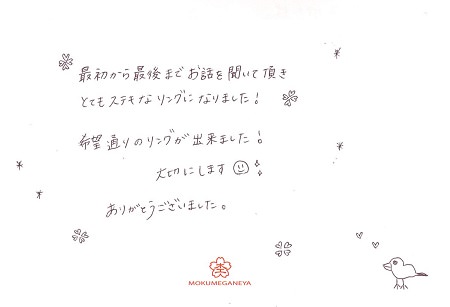 最初から最後までお話を聞いて頂き
とてもステキなリングになりました!
希望通りのリングが出来ました!
大切にします
ありがとうございました。
MOKUMEGANEYA